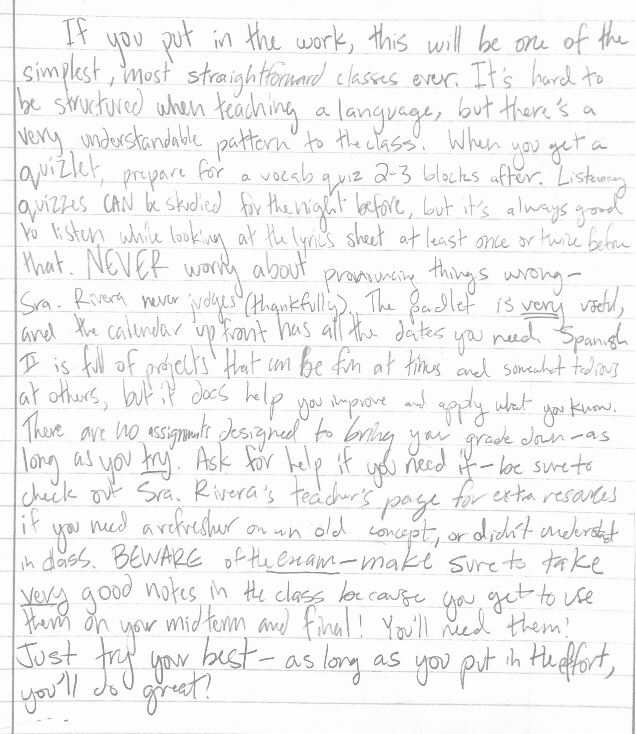 If you put in the work, this will be one of the
simplest, most straightforward classes ever. It's hard to
be structured when teaching a language, but there's a
very understandable pattern to the class. When you get a
quizlet, prepare for a vocab quiz 2-3 blocks after. Listening
quizzes CAN be studied for the night before, but it's always good
to listen while looking at the lyrics sheet at least once or twice before
that. NEVER worry about pronouncing things wrong-
Sra. Rivera never judges (thankfully). The padlet is very useful,
and the calendar up front has all the dates you need. Spanish
II is full of projects that can be fun at times and somewhat tedious
at others, but it does help you improve and apply what you know.
There are no assignments designed to bring your grade down-as
long as you try. Ask for help if you need it-be sure to
check out Sra. Rivera's teacher's page for extra resources
if you need a refresher on an old concept, or didn't understand
in class. BEWARE of the exam-make sure to take
very good notes in the class because you get to use
them on your midterm and final! You'll need them!
Just try your best-as long as you put in the effort,
you'll do great!